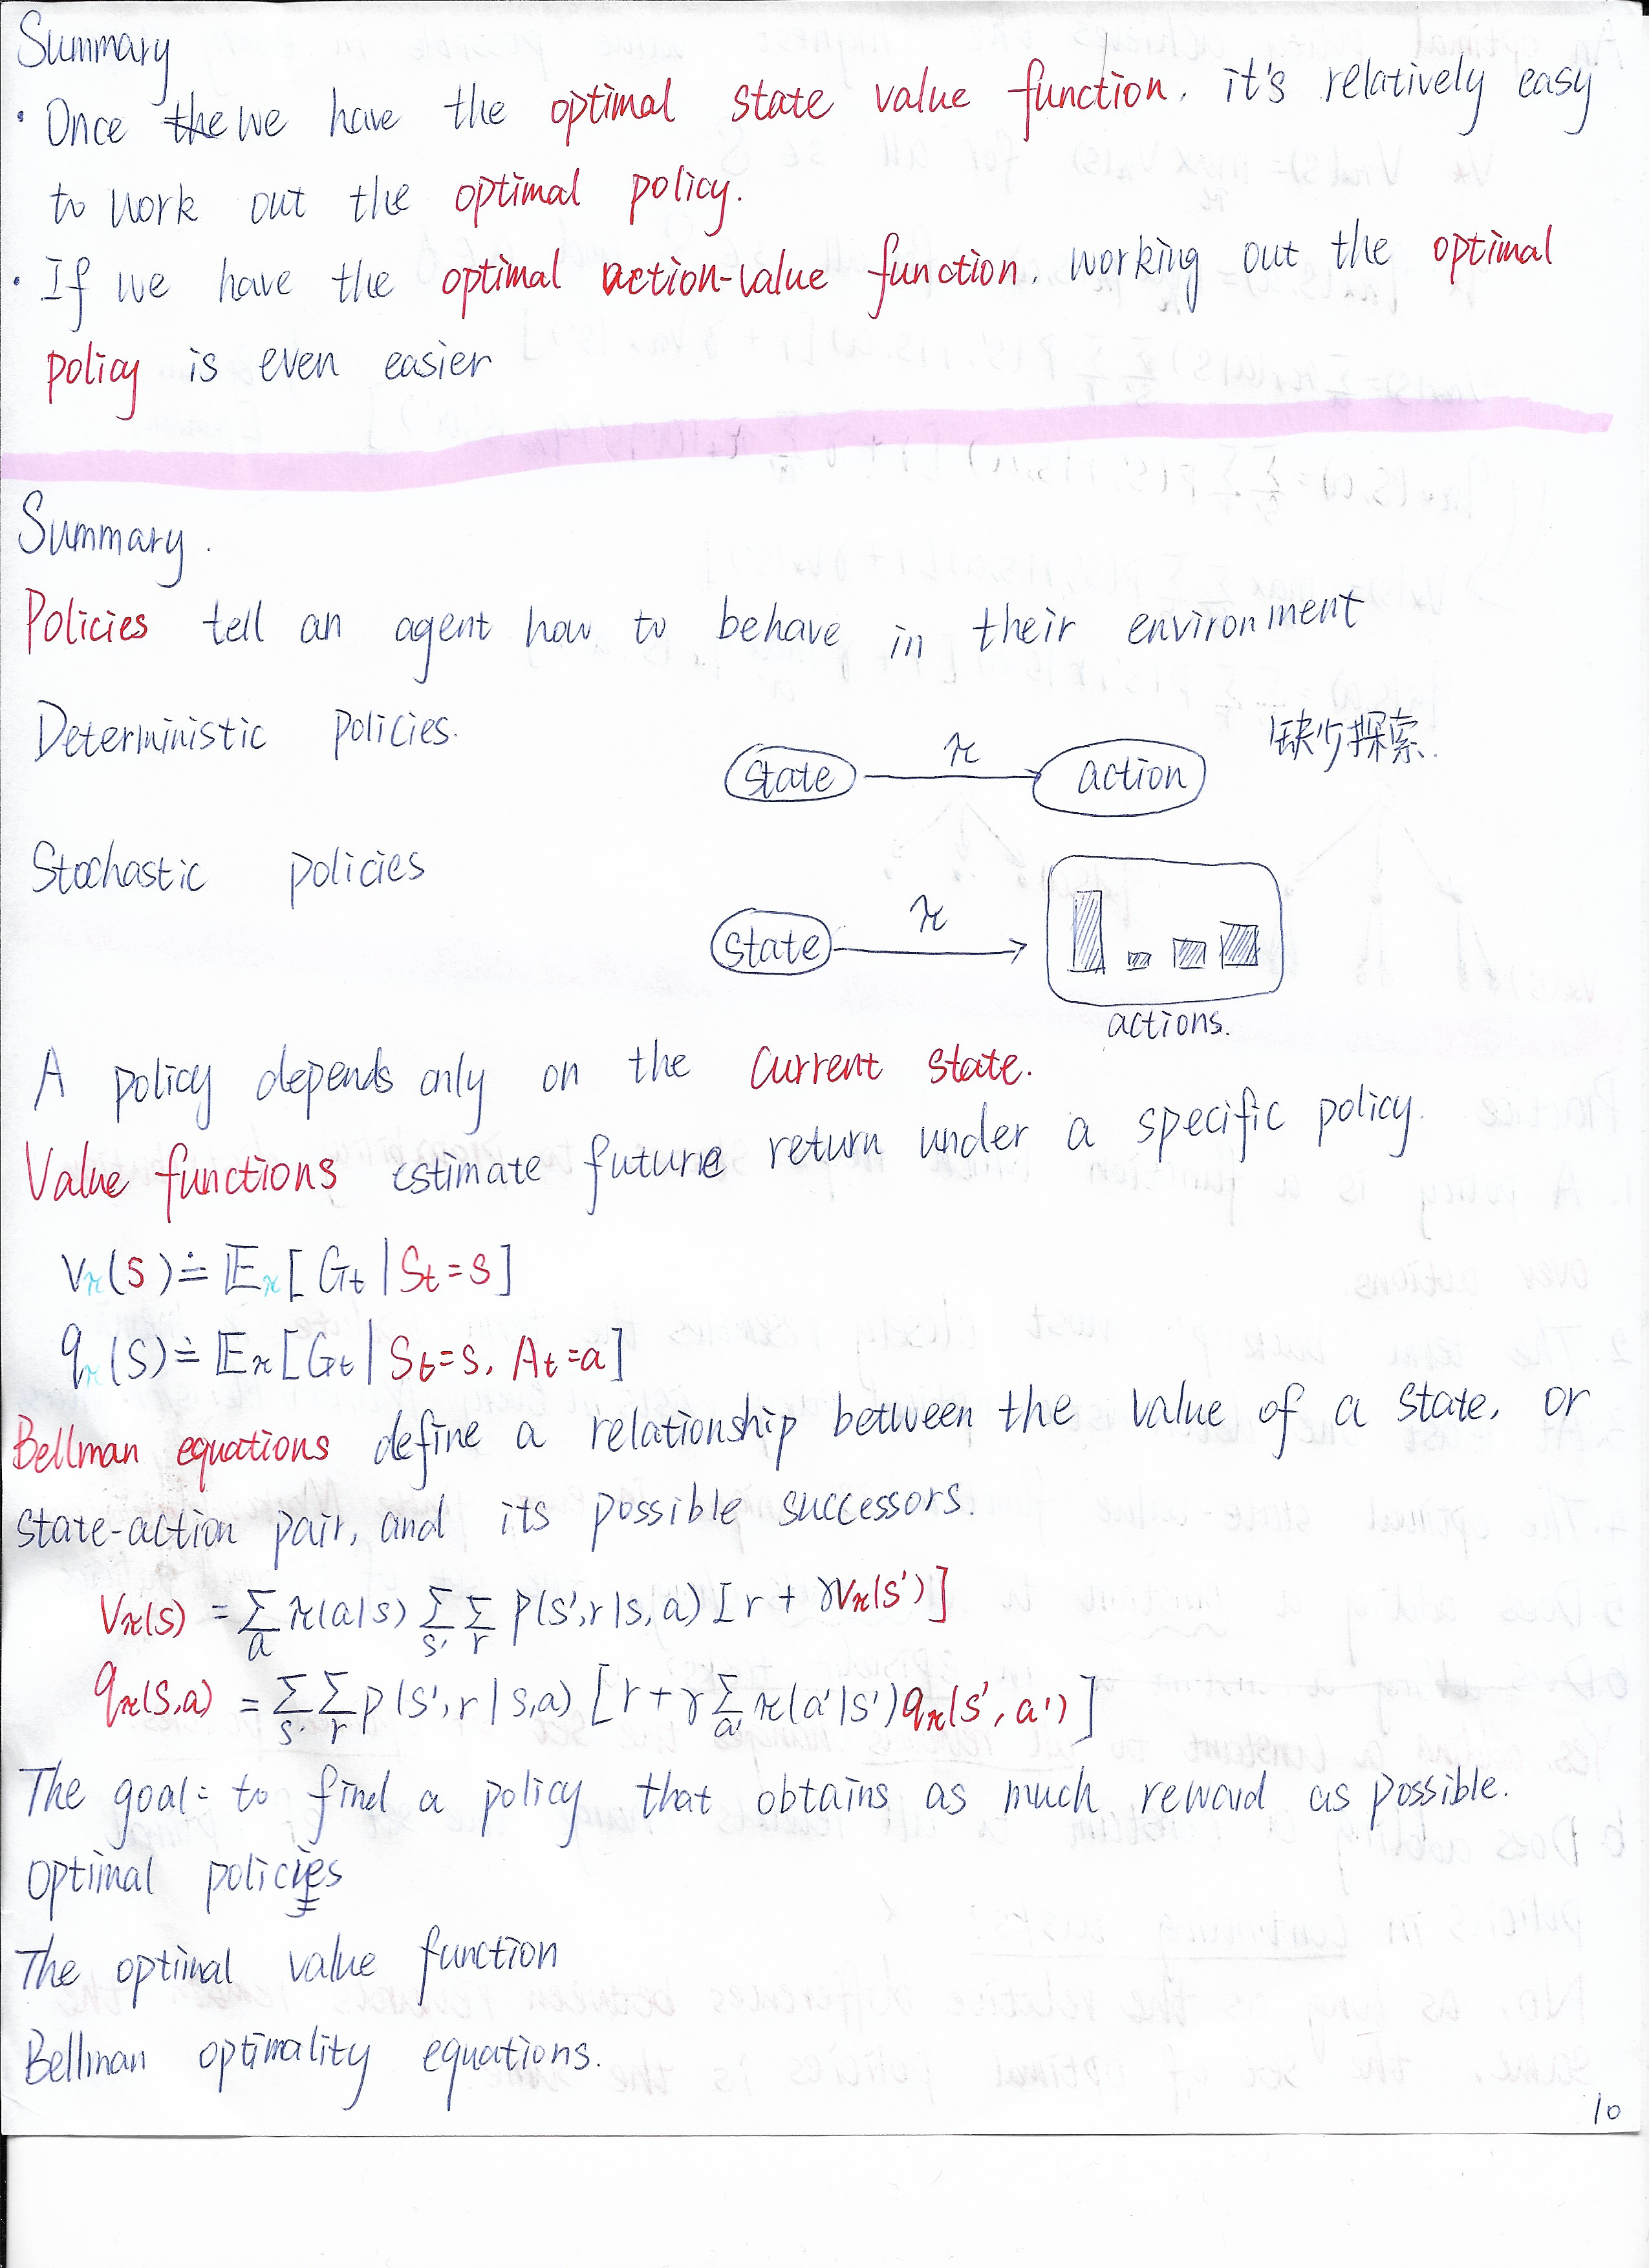 Summary
· Once the we have the optimal state value function. it's relatively easy
to work out the optimal policy.
· If we have the optimal action-value function. working out the optimal
policy is even easier
Summary.
Policies tell an agent how to behave in their environment
Deterministic policies.
缺少探索.
state π action
Stochastic policies
state π
actions.
A policy depends only on the current state.
Value functions estimate future return under a specific policy.
Vπ(s) ≐ 𝔼π[Gt | St=s]
qπ(s) ≐ 𝔼π[Gt | St=s, At=a]
Bellman equations define a relationship between the value of a state, or
state-action pair, and its possible successors.
Vπ(s) = Σa π(a|s) Σs' Σr p(s',r|s,a) [r + γVπ(s')]
qπ(s,a) = Σs' Σr p(s',r|s,a) [r + γ Σa' π(a'|s') qπ(s',a')]
The goal: to find a policy that obtains as much reward as possible.
optimal policies
The optimal value function
Bellman optimality equations.
10